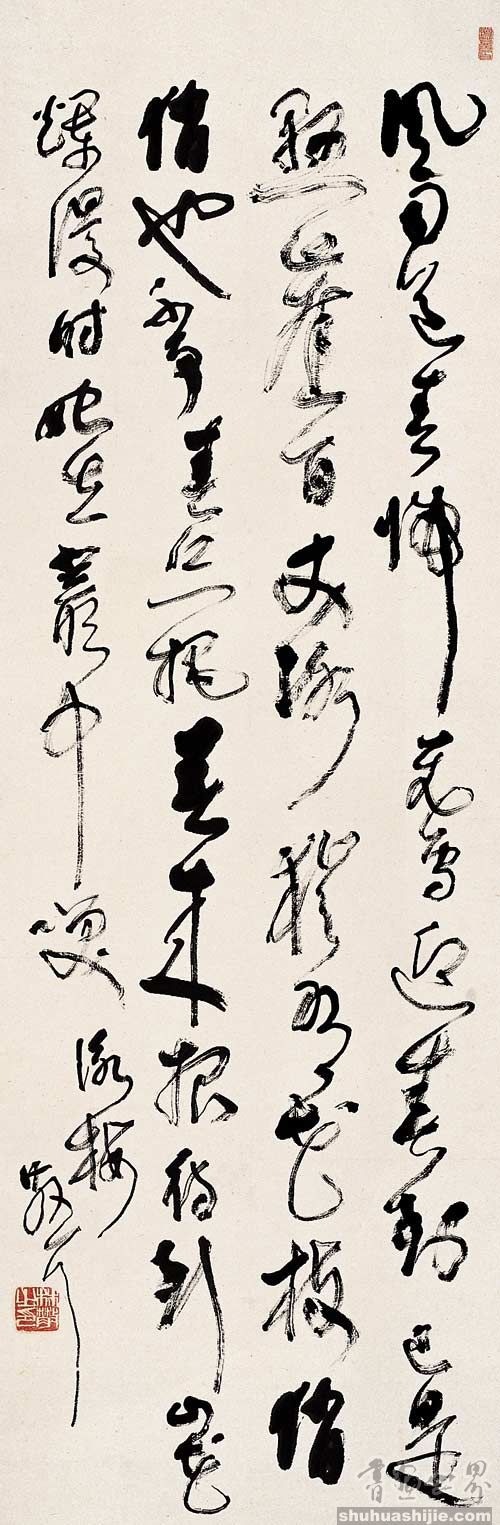 风雨送春归飞雪迎春到已是
悬崖百丈冰犹有花枝俏
俏也不争春只把春来报待到山花
爛漫时她在叢中咲
咏梅
散耳
林散之印
書画世界
shuhuashijie.com